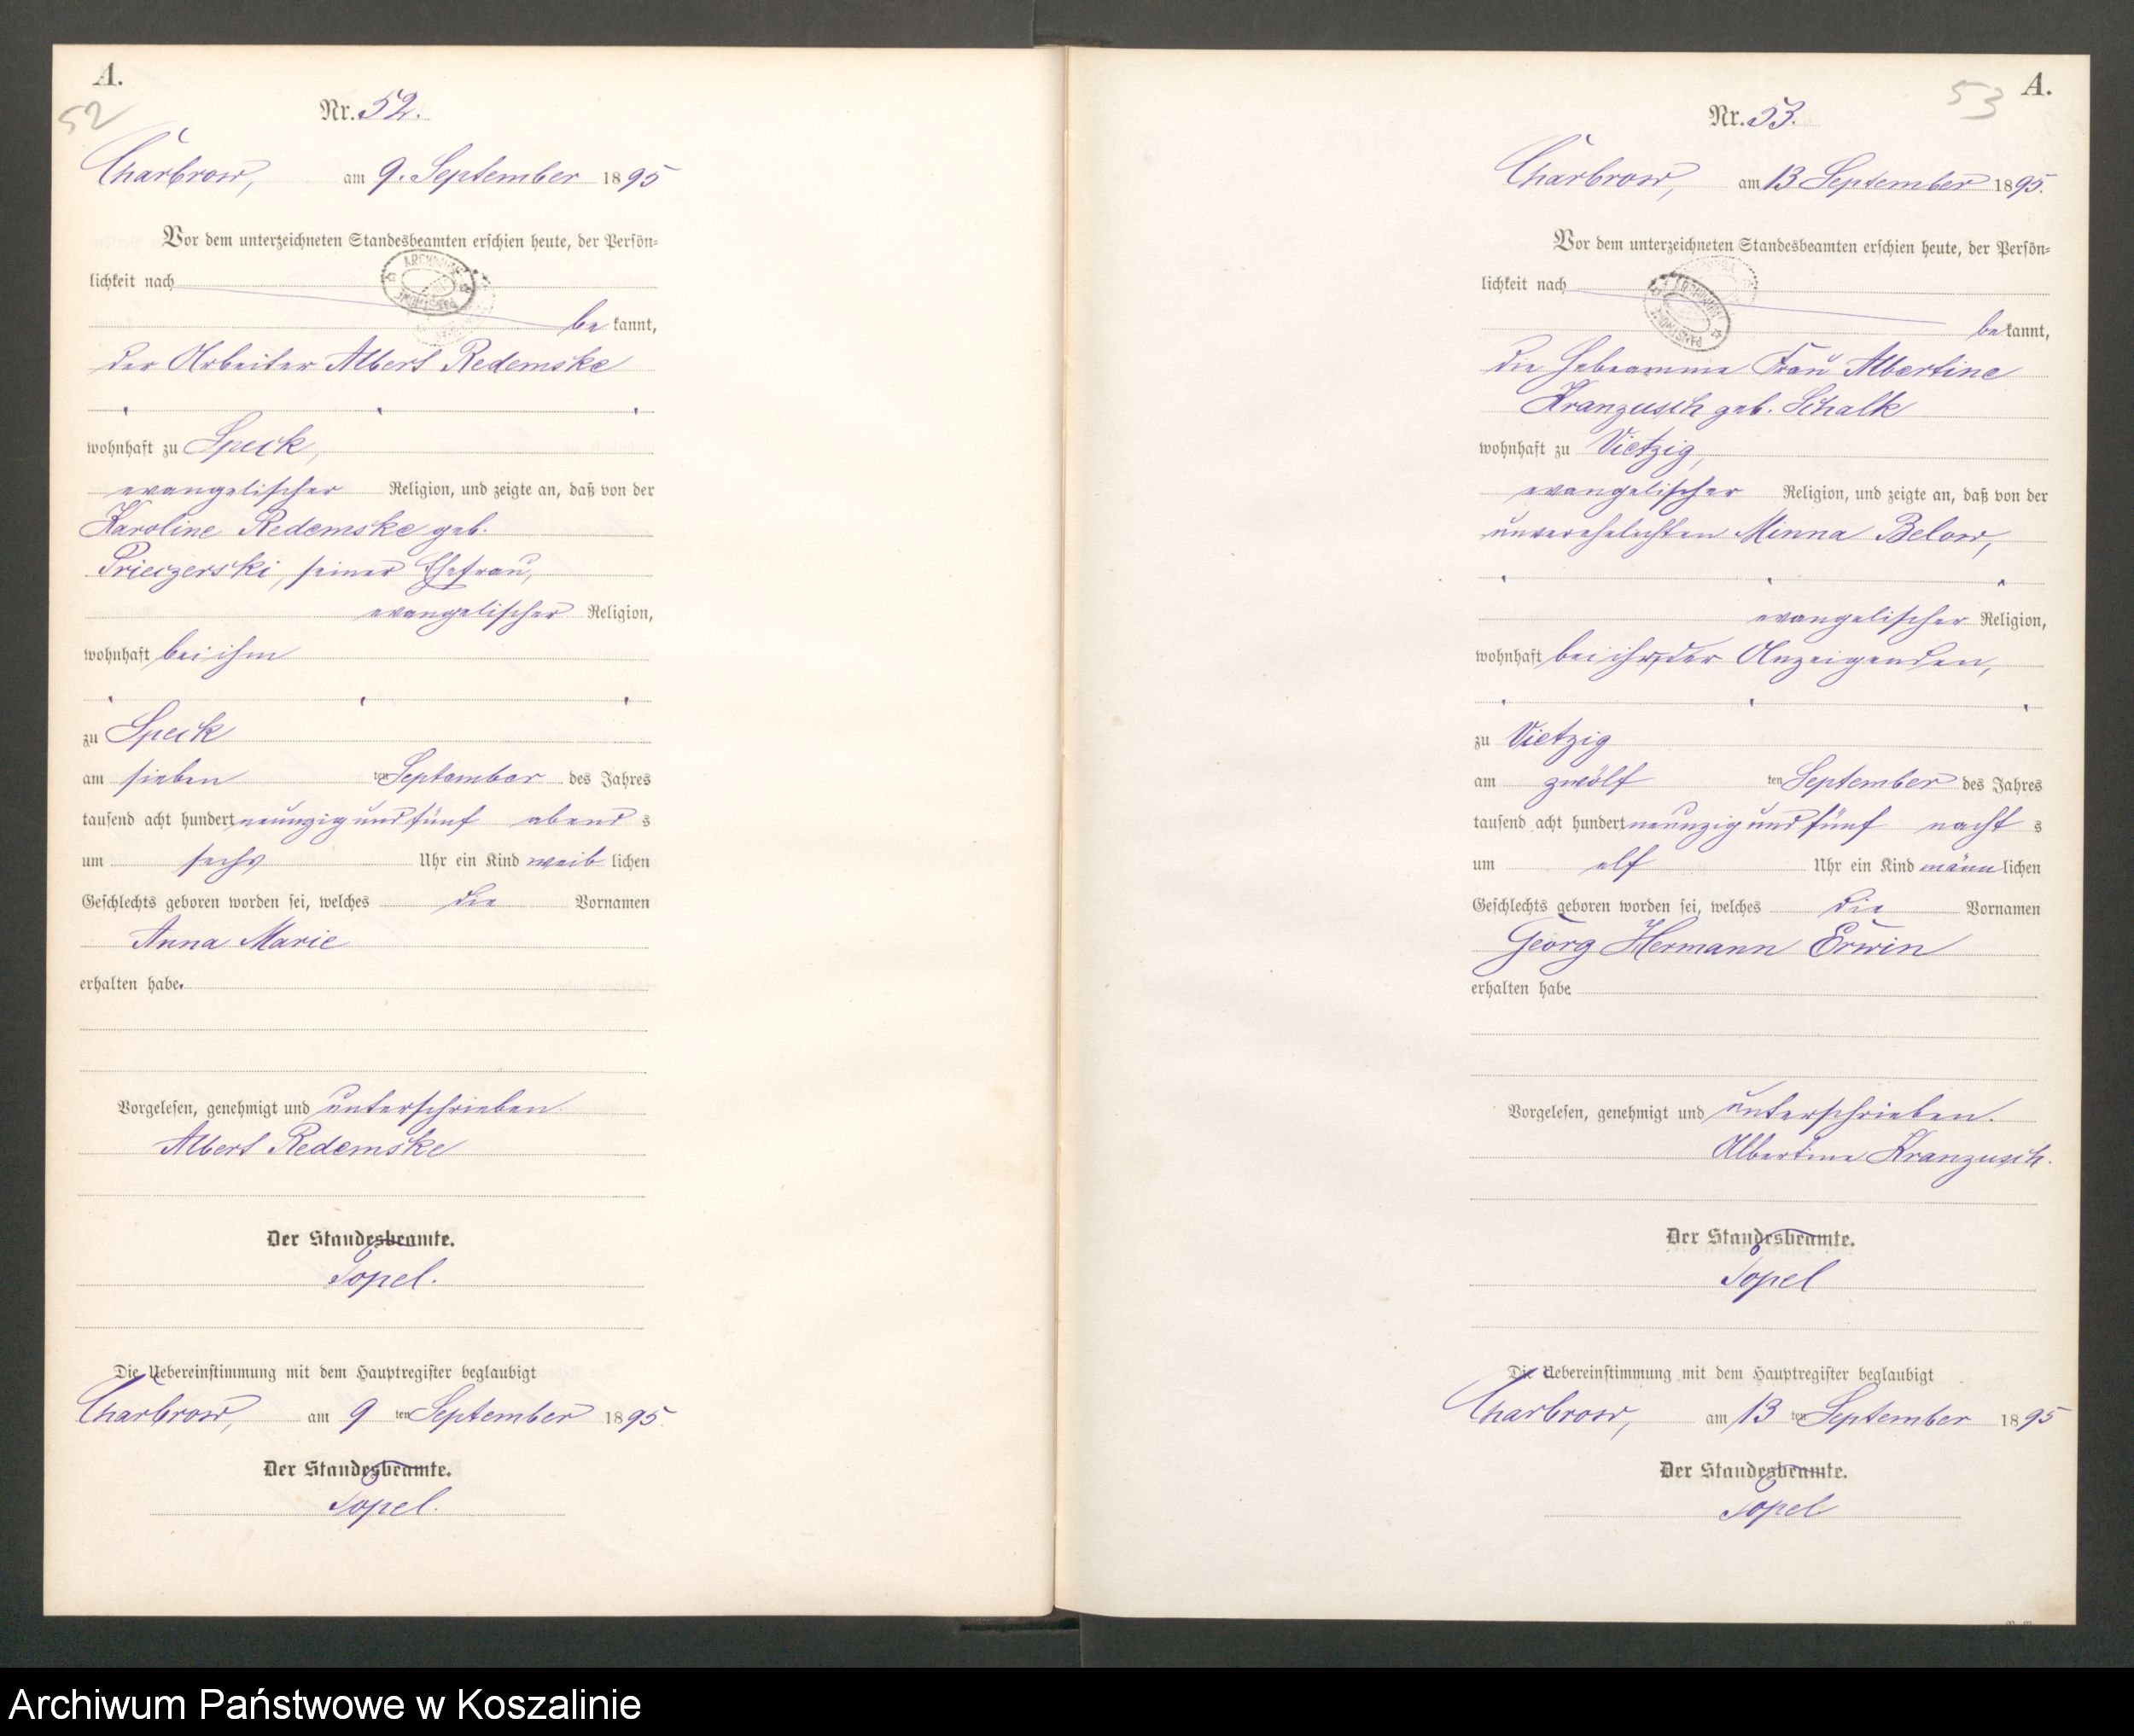 A.
52
Nr. 52.
Charbrow, am 9. September 1895
Vor dem unterzeichneten Standesbeamten erschien heute, der Persön-
lichkeit nach
be kannt,
der Arbeiter Albert Redemske
wohnhaft zu Speck,
evangelischer Religion, und zeigte an, daß von der
Karoline Redemske geb.
seiner Ehefrau,
evangelischer Religion,
wohnhaft bei ihm
zu Speck
am sieben ten September des Jahres
tausend acht hundert neunzig und fünf abend s
um sechs Uhr ein Kind weib lichen
Geschlechts geboren worden sei, welches die Vornamen
Anna Marie
erhalten habe.
Vorgelesen, genehmigt und unterschrieben.
Albert Redemske
Der Standesbeamte.
Topel.
Die Uebereinstimmung mit dem Hauptregister beglaubigt
Charbrow, am 9 ten September 1895.
Der Standesbeamte.
Topel.
53
A.
Nr. 53.
Charbrow, am 13 September 1895.
Vor dem unterzeichneten Standesbeamten erschien heute, der Persön-
lichkeit nach
be kannt,
die Hebeamme Frau Albertine
Kranzusch geb. Schalk
wohnhaft zu Vietzig,
evangelischer Religion, und zeigte an, daß von der
unverehelichten Minna Below,
evangelischer Religion,
wohnhaft bei ihr, der Anzeigenden,
zu Vietzig
am zwölf ten September des Jahres
tausend acht hundert neunzig und fünf nacht s
um elf Uhr ein Kind männ lichen
Geschlechts geboren worden sei, welches die Vornamen
Georg Hermann Erwin
erhalten habe
Vorgelesen, genehmigt und unterschrieben.
Albertine Kranzusch.
Der Standesbeamte.
Topel
Die Uebereinstimmung mit dem Hauptregister beglaubigt
Charbrow, am 13 ten September 1895
Der Standesbeamte.
Topel
Archiwum Państwowe w Koszalinie